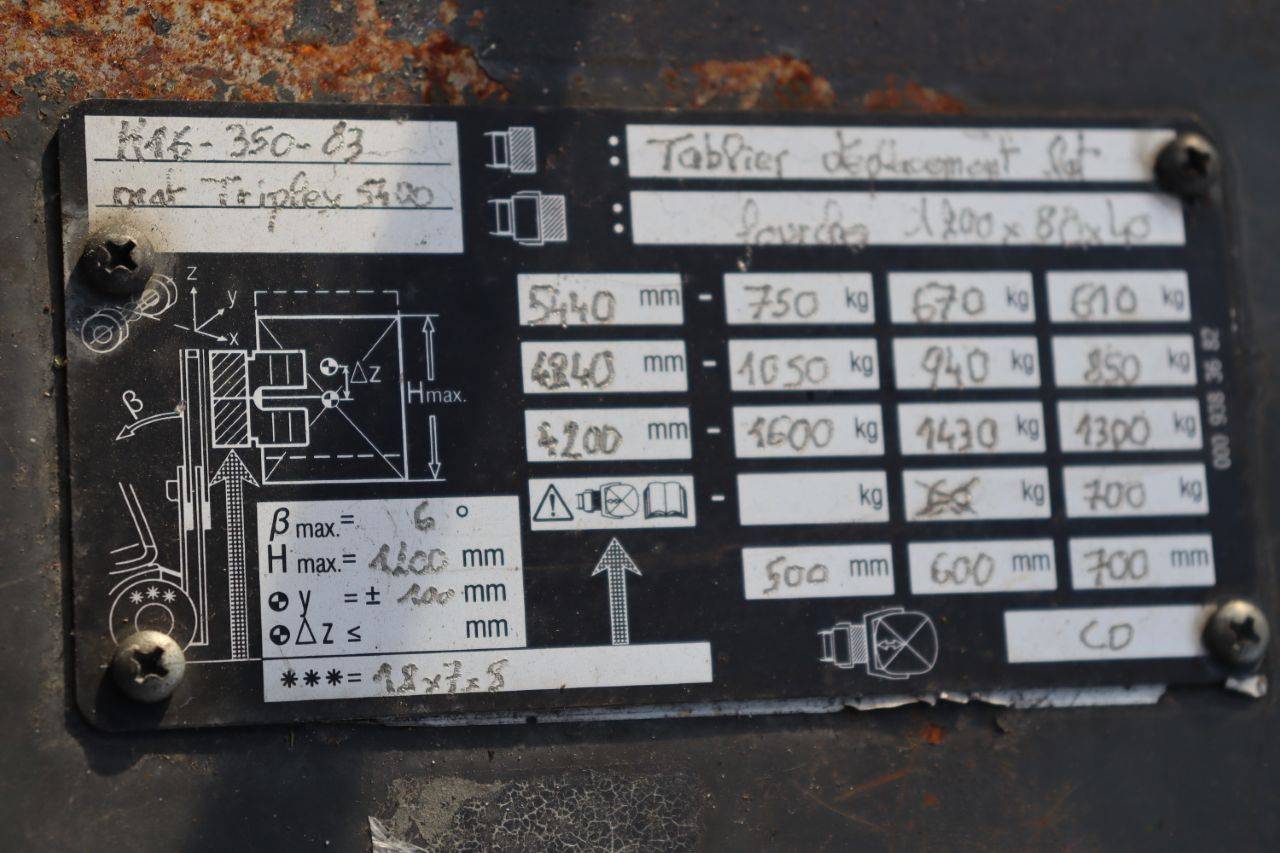 H16-350-03
mat Triplex 5400
: Tablier déplacement lat
: fourches 1200x80x40
z
y
x
β
Δz
H max.
5440 mm - 750 kg 670 kg 610 kg
4840 mm - 1050 kg 940 kg 850 kg
4200 mm - 1600 kg 1430 kg 1300 kg
- kg 60 kg 700 kg
500 mm 600 mm 700 mm
CD
β max. = 6 °
H max. = 1200 mm
y = ± 100 mm
Δ z ≤ mm
*** = 18x7x8
000 938 36 82